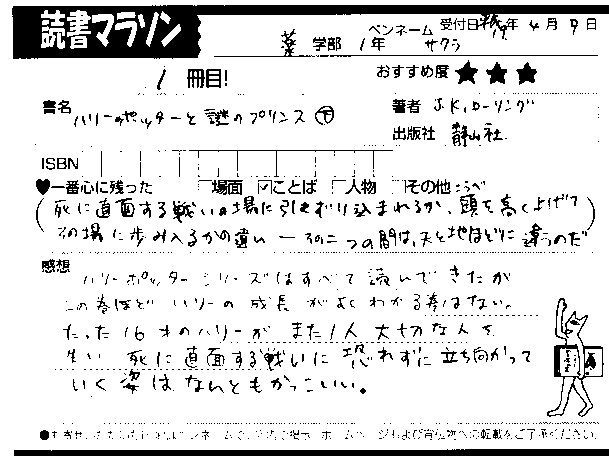 読書マラソン
ペンネーム 受付日 19年4月9日
薬 学部 1年 サクラ
1 冊目! おすすめ度 ★★★
書名 ハリーポッターと謎のプリンス 下
著者 J.K.ローリング
出版社 静山社
ISBN
♥一番心に残った □場面 ☑ことば □人物 □その他
死に直面する戦いの場に引きずり込まれるか、頭を高く上げて
その場に歩み入るかの違い ― その二つの間は、天と地ほどに違うのだ
感想 ハリーポッターシリーズはすべて読んできたが
この巻ほど ハリーの成長がよくわかる巻はない。
たった16才のハリーが また1人大切な人を
失い 死に直面する戦いに恐れずに立ち向かって
いく姿はなんともかっこいい。